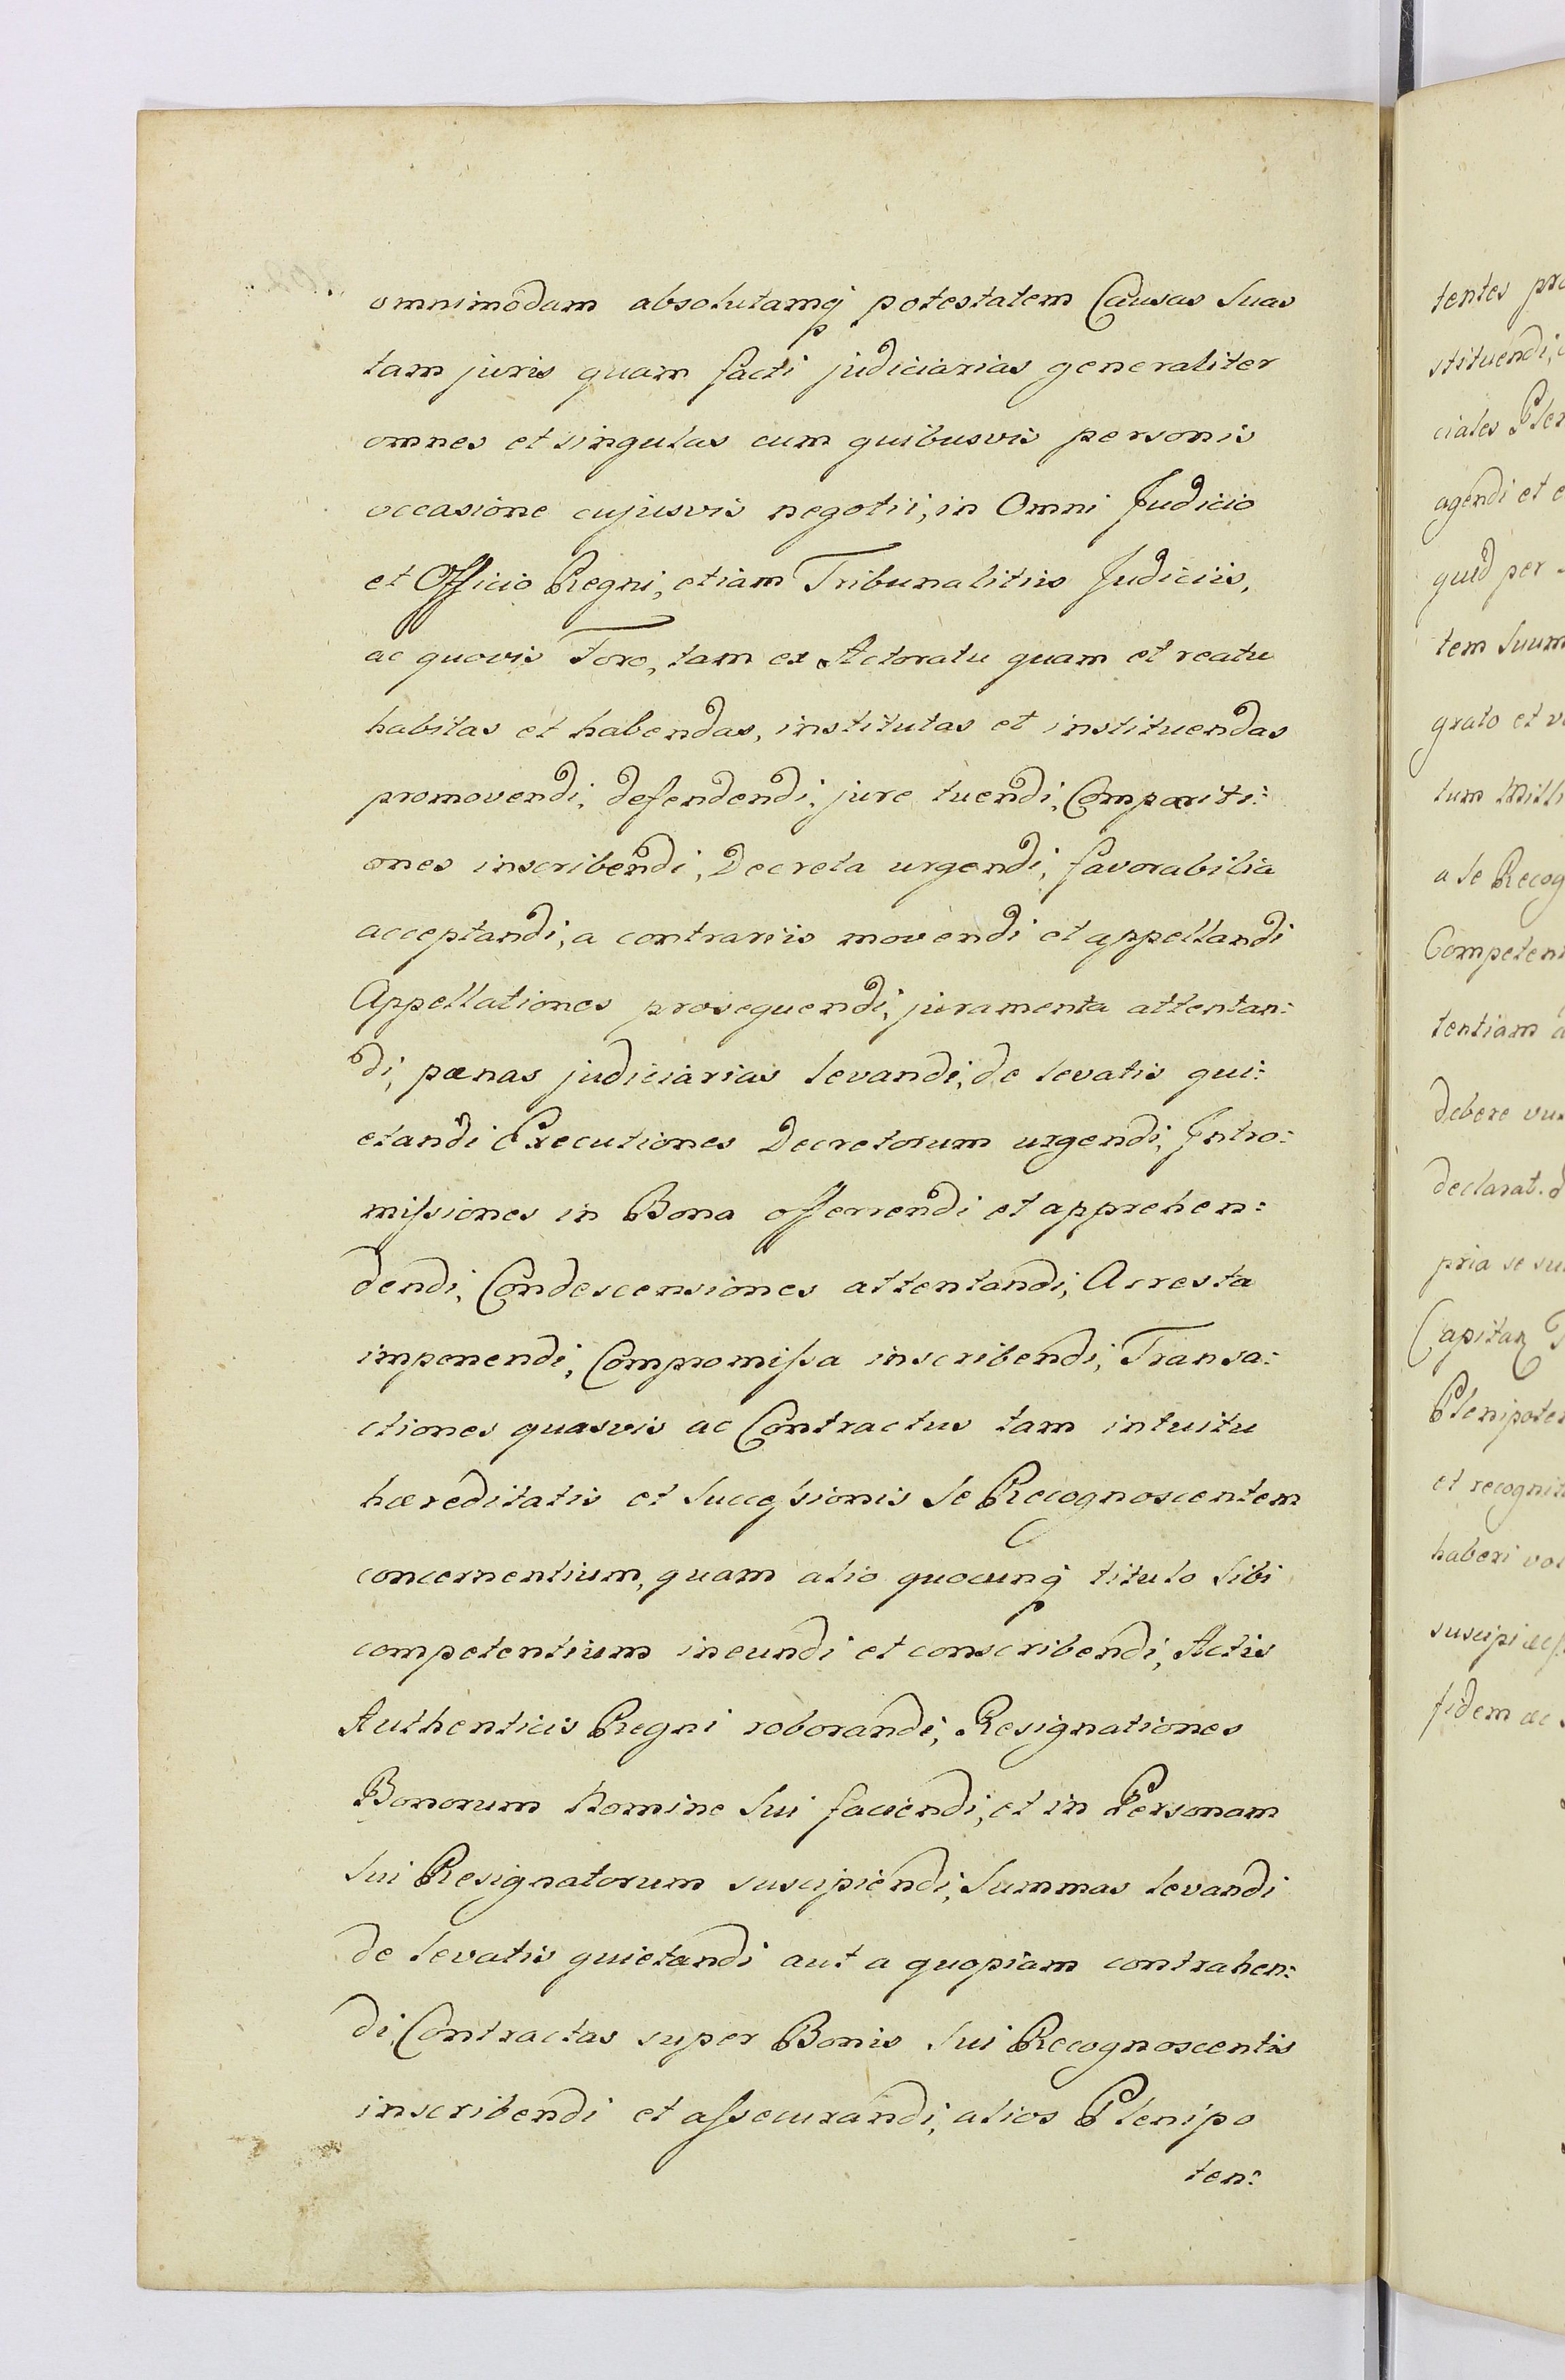 omnimodam absolutamq́ potestatem Causas Suas
tam juris quam facti judiciarias generaliter
omnes et singulas cum quibusvis personis
occasione cujusvis negotii, in Omni Judicio
et Officio Regni, etiam Tribunalitiis Judiciis,
ac quovis Foro, tam ex Actoratu quam et reatu
habitas et habendas, institutas et instituendas
promovendi, defendendi, jure tuendi, Compariti:
ones inscribendi, Decreta urgendi, favorabilia
acceptandi, a contrariis movendi et appellandi
Appellationes prosequendi, juramenta attentan:
di, pænas judiciarias levandi, de levatis qui:
etandi Executiones Decretorum urgendi, Intro:
missiones in Bona offerrendi et apprehen:
dendi, Condescensiones attentandi, Arresta
imponendi, Compromissa inscribendi, Transa:
ctiones quasvis ac Contractus tam intuitu
hæreditatis et Successionis Se Recognoscentem
concernentium, quam alio quocunq́ titulo Sibi
competentium ineundi et conscribendi, Actis
Authenticis Regni roborandi, Resignationes
Bonorum Nomine Sui faciendi, et in Personam
Sui Resignatorum suscipiendi, Summas levandi
de levatis quietandi aut a quopiam contrahen:
di, Contractas super Bonis Sui Recognoscentis
inscribendi et assecurandi, alios Plenipo
ten:
tentes pro
stituendi,
ciales Plen
agendi et
quid per
tem Suum
grato et
tum
a Se Recog
Competen
tentiam
debere
declarat.
pria se
Capitan
Plenipoten
et
haberi
suscipi
fidem ac